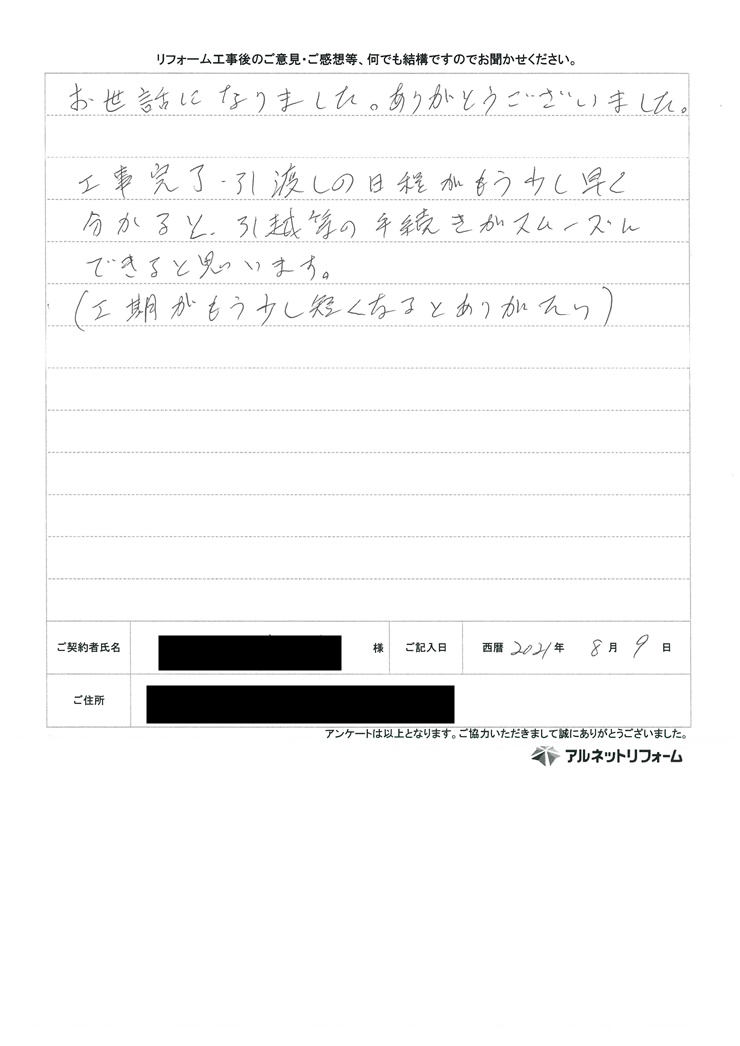 リフォーム工事後のご意見・ご感想等、何でも結構ですのでお聞かせください。
お世話になりました。ありがとうございました。
工事完了・引渡しの日程がもう少し早く
分かると、引越等の手続きがスムーズに
できると思います。
(工期がもう少し短くなるとありがたい)
ご契約者氏名 様 ご記入日 西暦 2021年 8月 9日
ご住所
アンケートは以上となります。ご協力いただきまして誠にありがとうございました。
アルネットリフォーム